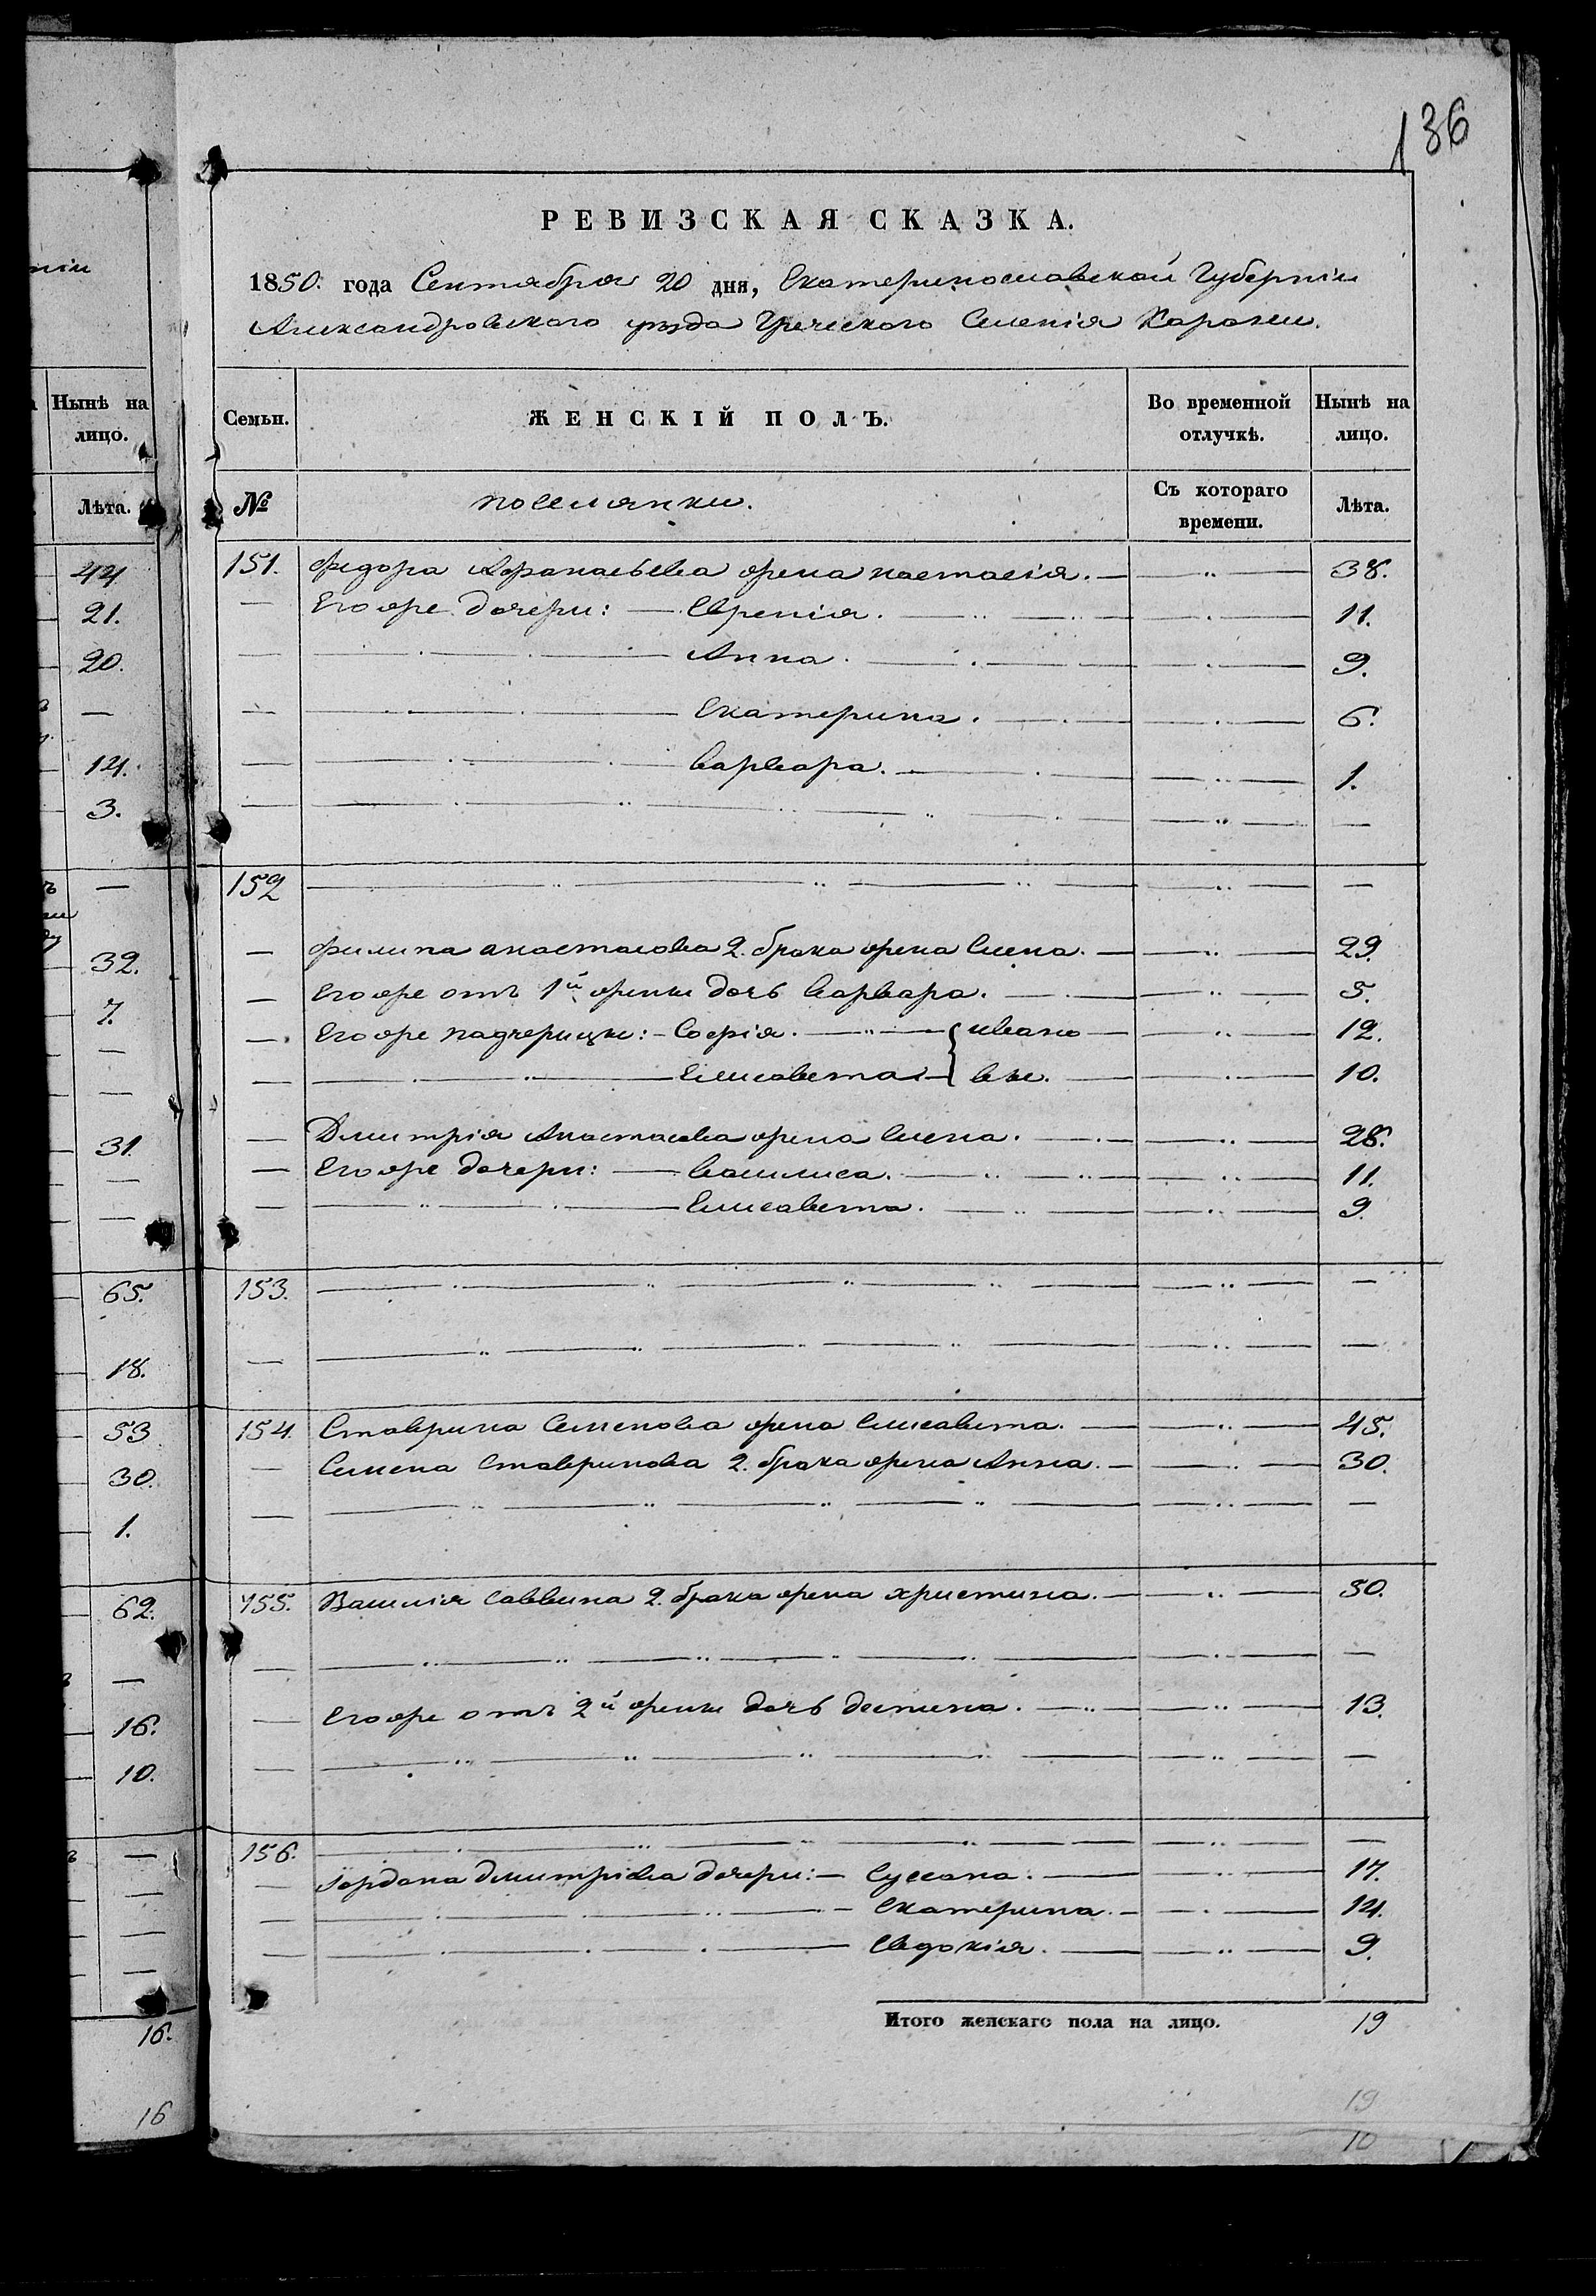 136
РЕВИЗСКАЯ СКАЗКА.
1850. года Сентября 20 дня, Екатеринославской Губерніи
Александровскаго уѣзда Греческаго Селенія Карани.
Нынѣ на лицо.
Лѣта.
44
21.
20.
—
14.
3.
—
32.
7.
—
—
31.
—
—
65.
18.
53
30.
1.
62.
—
16.
10.
—
—
—
—
16.
16
Семьи. ЖЕНСКІЙ ПОЛЪ. Во временной отлучкѣ. Нынѣ на лицо.
№ поселянки. Съ котораго времени. Лѣта.
151. Федора Афанасьева жена настасія. — 38.
— Его же дочери: — Евгенія. — 11.
— Анна. — 9.
— Екатерина. — 6.
— Варвара. — 1.
— — —
152 — —
— Филипа анастасова 2. брака жена Елена. — 29.
— Его же отъ 1й жены дочь Варвара. — 5.
— Его же падчерицы: — Софія. — { ивано — 12.
— Елисавета — вы. — 10.
— Дмитрія Анастасова жена Елена. — 28.
— Его же дочери: — Василиса. — 11.
— Елисавета. — 9.
153. — —
— — —
154. Ставрина Семенова жена Елисавета. — 45.
— Семена Ставринова 2. брака жена Анна. — 30.
— — —
155. Василія Саввина 2. брака жена христина. — 50.
— — —
— Его же отъ 2й жены дочь деспина. — 13.
— — —
156. — —
— Іордана дмитріева дочери: — Сусана. — 17.
— Екатерина. — 14.
— Евдокія. — 9.
Итого женскаго пола на лицо. 19
19
10